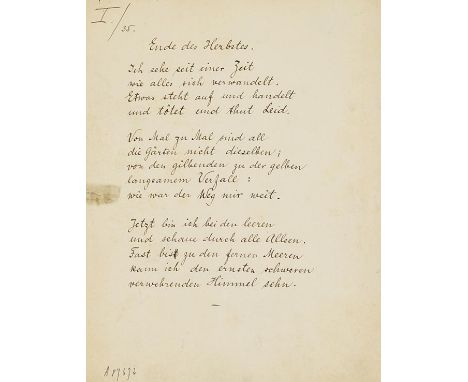 I/35.
Ende des Herbstes.
Ich sehe seit einer Zeit
wie alles sich verwandelt.
Etwas steht auf und handelt
und tötet und thut Leid.
Von Mal zu Mal sind all
die Gärten nicht dieselben;
von den gilbenden zu der gelben
langsamem Verfall:
wie war der Weg mir weit.
Jetzt bin ich bei den leeren
und schaue durch alle Alleen.
Fast bis zu den fernen Meeren
kann ich den ernsten schweren
verwehrenden Himmel sehn.